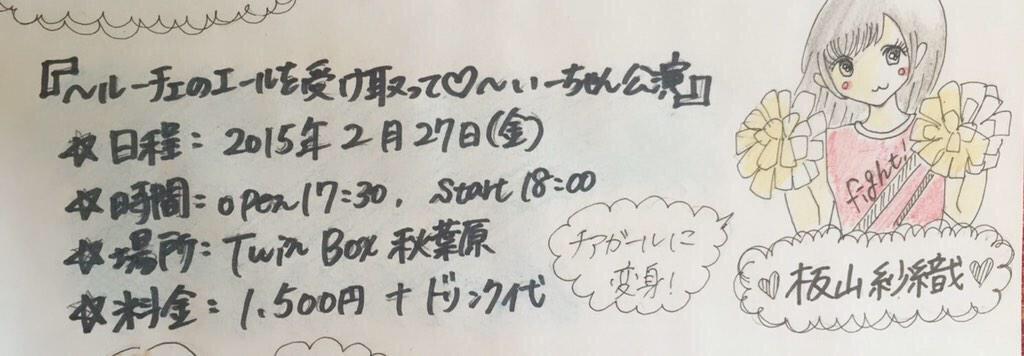 『〜ルーチェのエールを受け取って♡〜いーちゃん公演』
☆日程：2015年2月27日(金)
☆時間：open17:30, start18:00
☆場所：Twin Box 秋葉原
☆料金：1.500円+ドリンク代
チアガールに
変身!
fight!
♡板山紗織♡